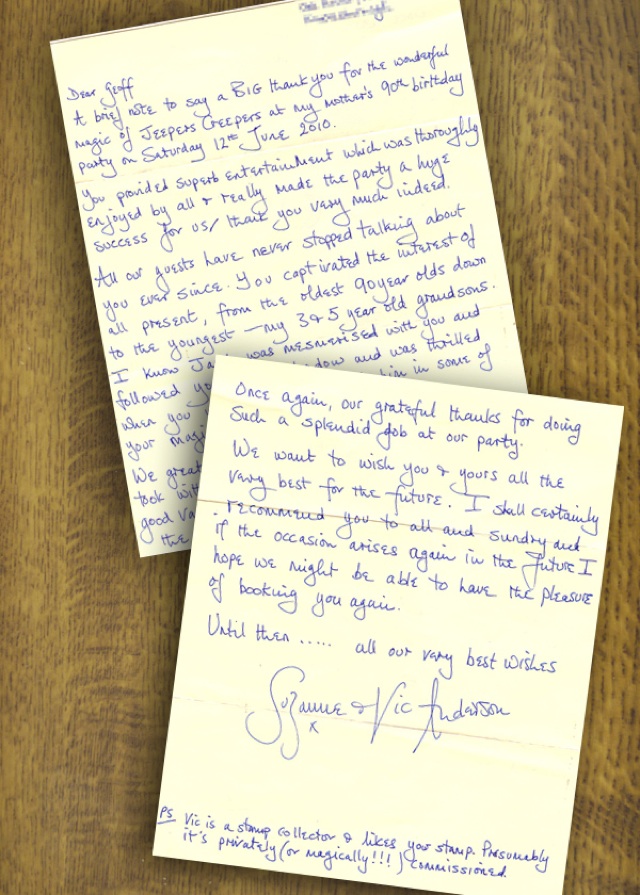 Dear Geoff
A brief note to say a BIG thank you for the wonderful
magic of JEEPERS CREEPERS at my mother's 90th birthday
party on Saturday 12th June 2010.
You provided superb entertainment which was thoroughly
enjoyed by all & really made the party a huge
success for us, thank you very much indeed.
All our guests have never stopped talking about
you ever since. You captivated the interest of
all present, from the oldest 90 year olds down
to the youngest – my 3 & 5 year old grandsons.
I know was mesmerised with you and
followed and was thrilled
when you him in some of
your
We
took
good
the
Once again, our grateful thanks for doing
such a splendid job at our party.
We want to wish you & yours all the
very best for the future. I shall certainly
recommend you to all and sundry and
if the occasion arises again in the future I
hope we might be able to have the pleasure
of booking you again.
Until then ..... all our very best wishes
Suzanne & Vic Anderson
x
PS Vic is a stamp collector & likes your stamp. Presumably
it's privately (or magically!!!) commissioned.